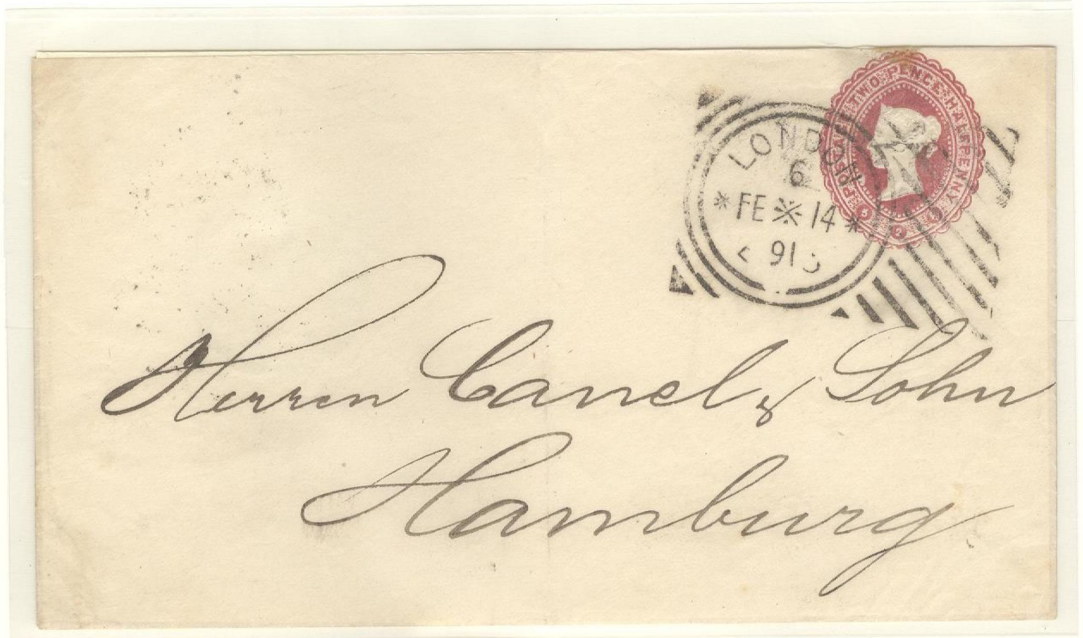 POSTAGE TWO PENCE HALFPENNY
LONDON
6
FE 14
91
Herren Canel & Sohn
Hamburg